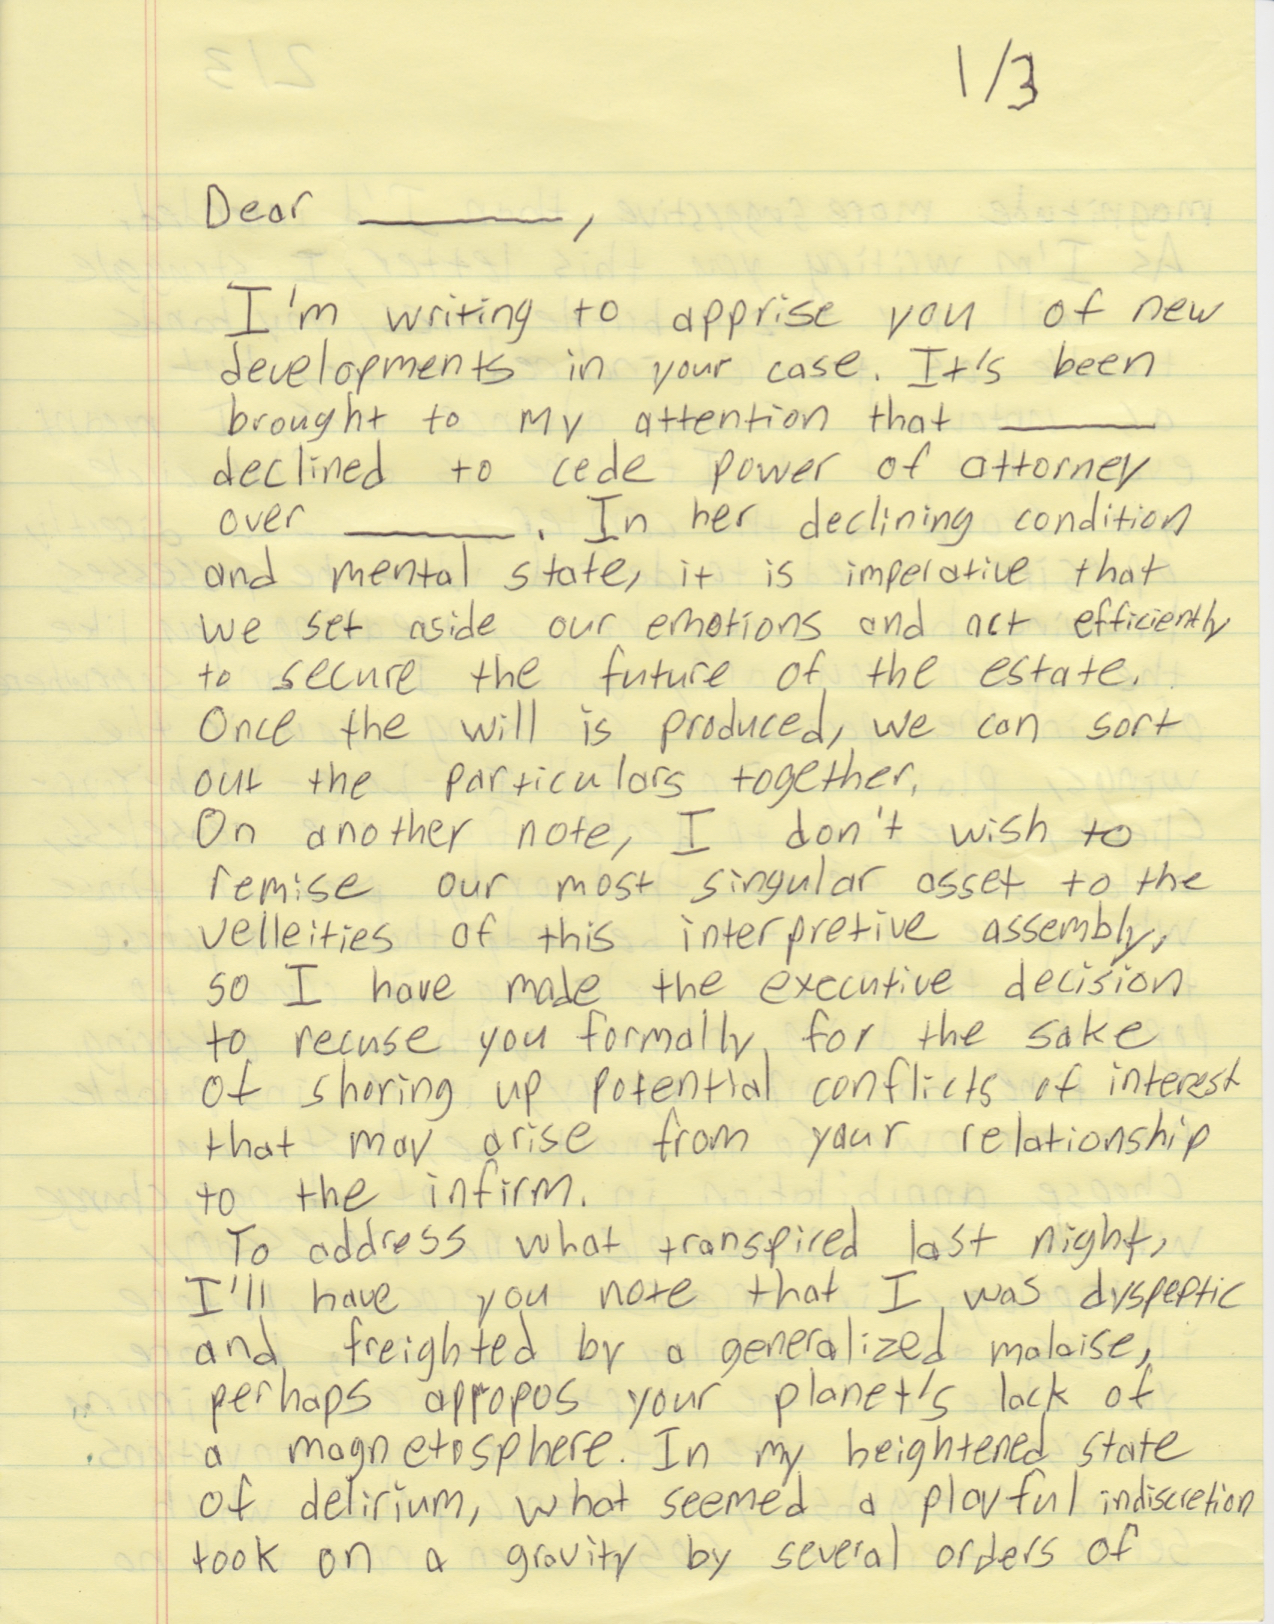 1/3
Dear ________,
I'm writing to apprise you of new
developments in your case. It's been
brought to my attention that ________
declined to cede power of attorney
over ________. In her declining condition
and mental state, it is imperative that
we set aside our emotions and act efficiently
to secure the future of the estate.
Once the will is produced, we can sort
out the particulars together.
On another note, I don't wish to
remise our most singular asset to the
velleities of this interpretive assembly,
so I have made the executive decision
to recuse you formally for the sake
of shoring up potential conflicts of interest
that may arise from your relationship
to the infirm.
To address what transpired last night,
I'll have you note that I was dyspeptic
and freighted by a generalized malaise,
perhaps appopos your planet's lack of
a magnetosphere. In my heightened state
of delirium, what seemed a playful indiscretion
took on a gravity by several orders of